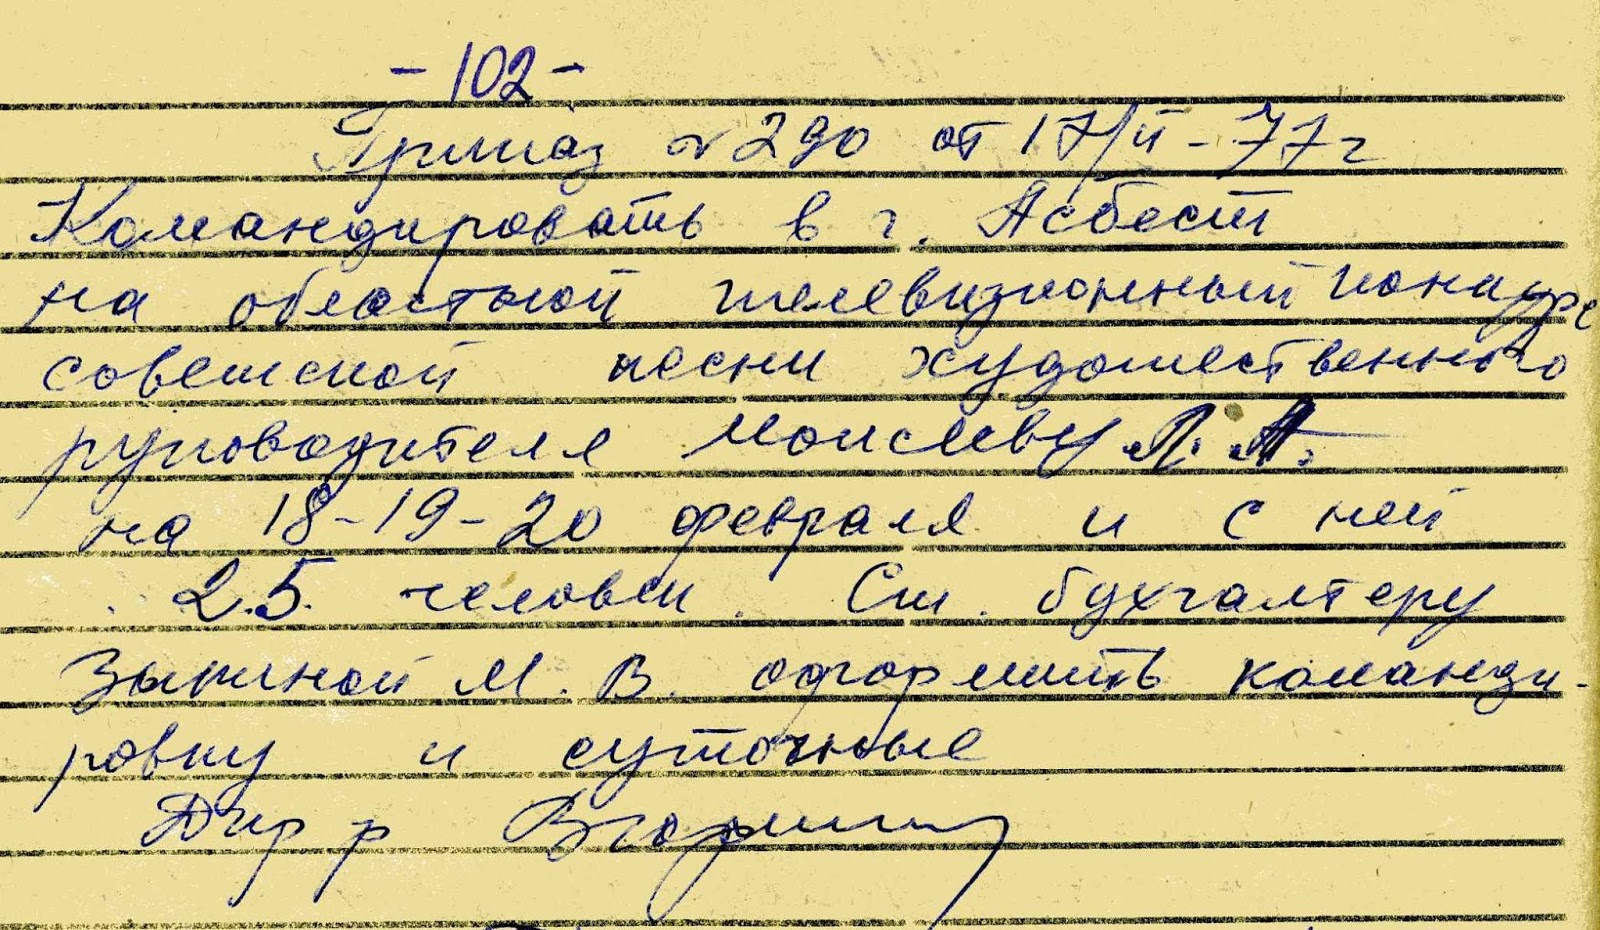 - 102 -
Приказ № 290 от 17/II - 77 г
Командировать в г. Асбест
на областной телевизионный конкурс
советской песни художественного
руководителя Моисееву Л. А.
на 18-19-20 февраля и с ней
25 человек. Ст. бухгалтеру
Зыкиной М. В. оформить команди-
ровку и суточные
Дир р